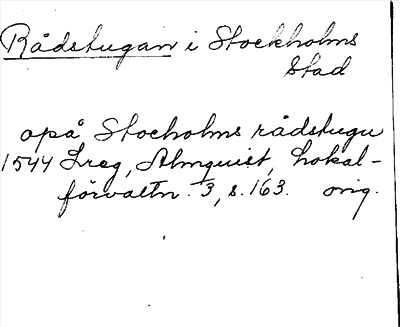 Rådstugan i Stockholms
Stad
opå Stocholms rådstugu
1544 Greg, Almquist, Lokal-
förvaltn. 3, s. 163. orig.